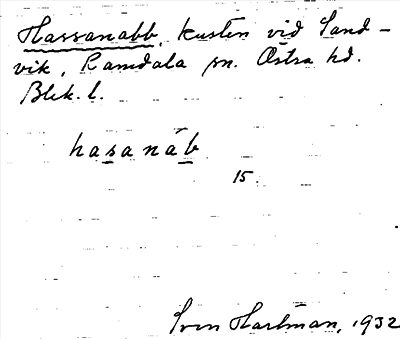 Hassanabb, kusten vid Sand-
vik, Ramdala sn. Östra hd.
Blek. l.
hasanab
15.
Sven Hartman, 1932